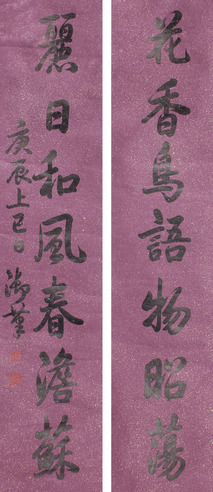 花香鳥語物昭蕩
麗日和風春澹蘇
庚辰上巳日
御筆